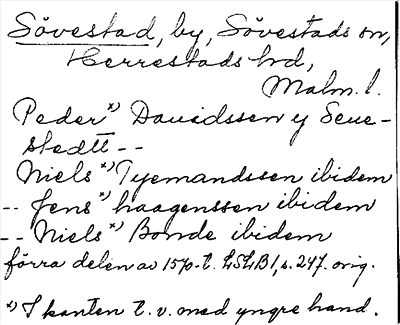 Sövestad, by, Sövestads sn,
Herrestads hd,
Malm. l.
Peder x) Dauidssen y Seue-
stedtt --
Niels x) Tyemandssen ibidem
-- Jens x) haagenssen ibidem
-- Niels x) Bonde ibidem
förra delen av 1570-t. LSLB1, s. 247. orig.
x) I kanten t. v. med yngre hand.